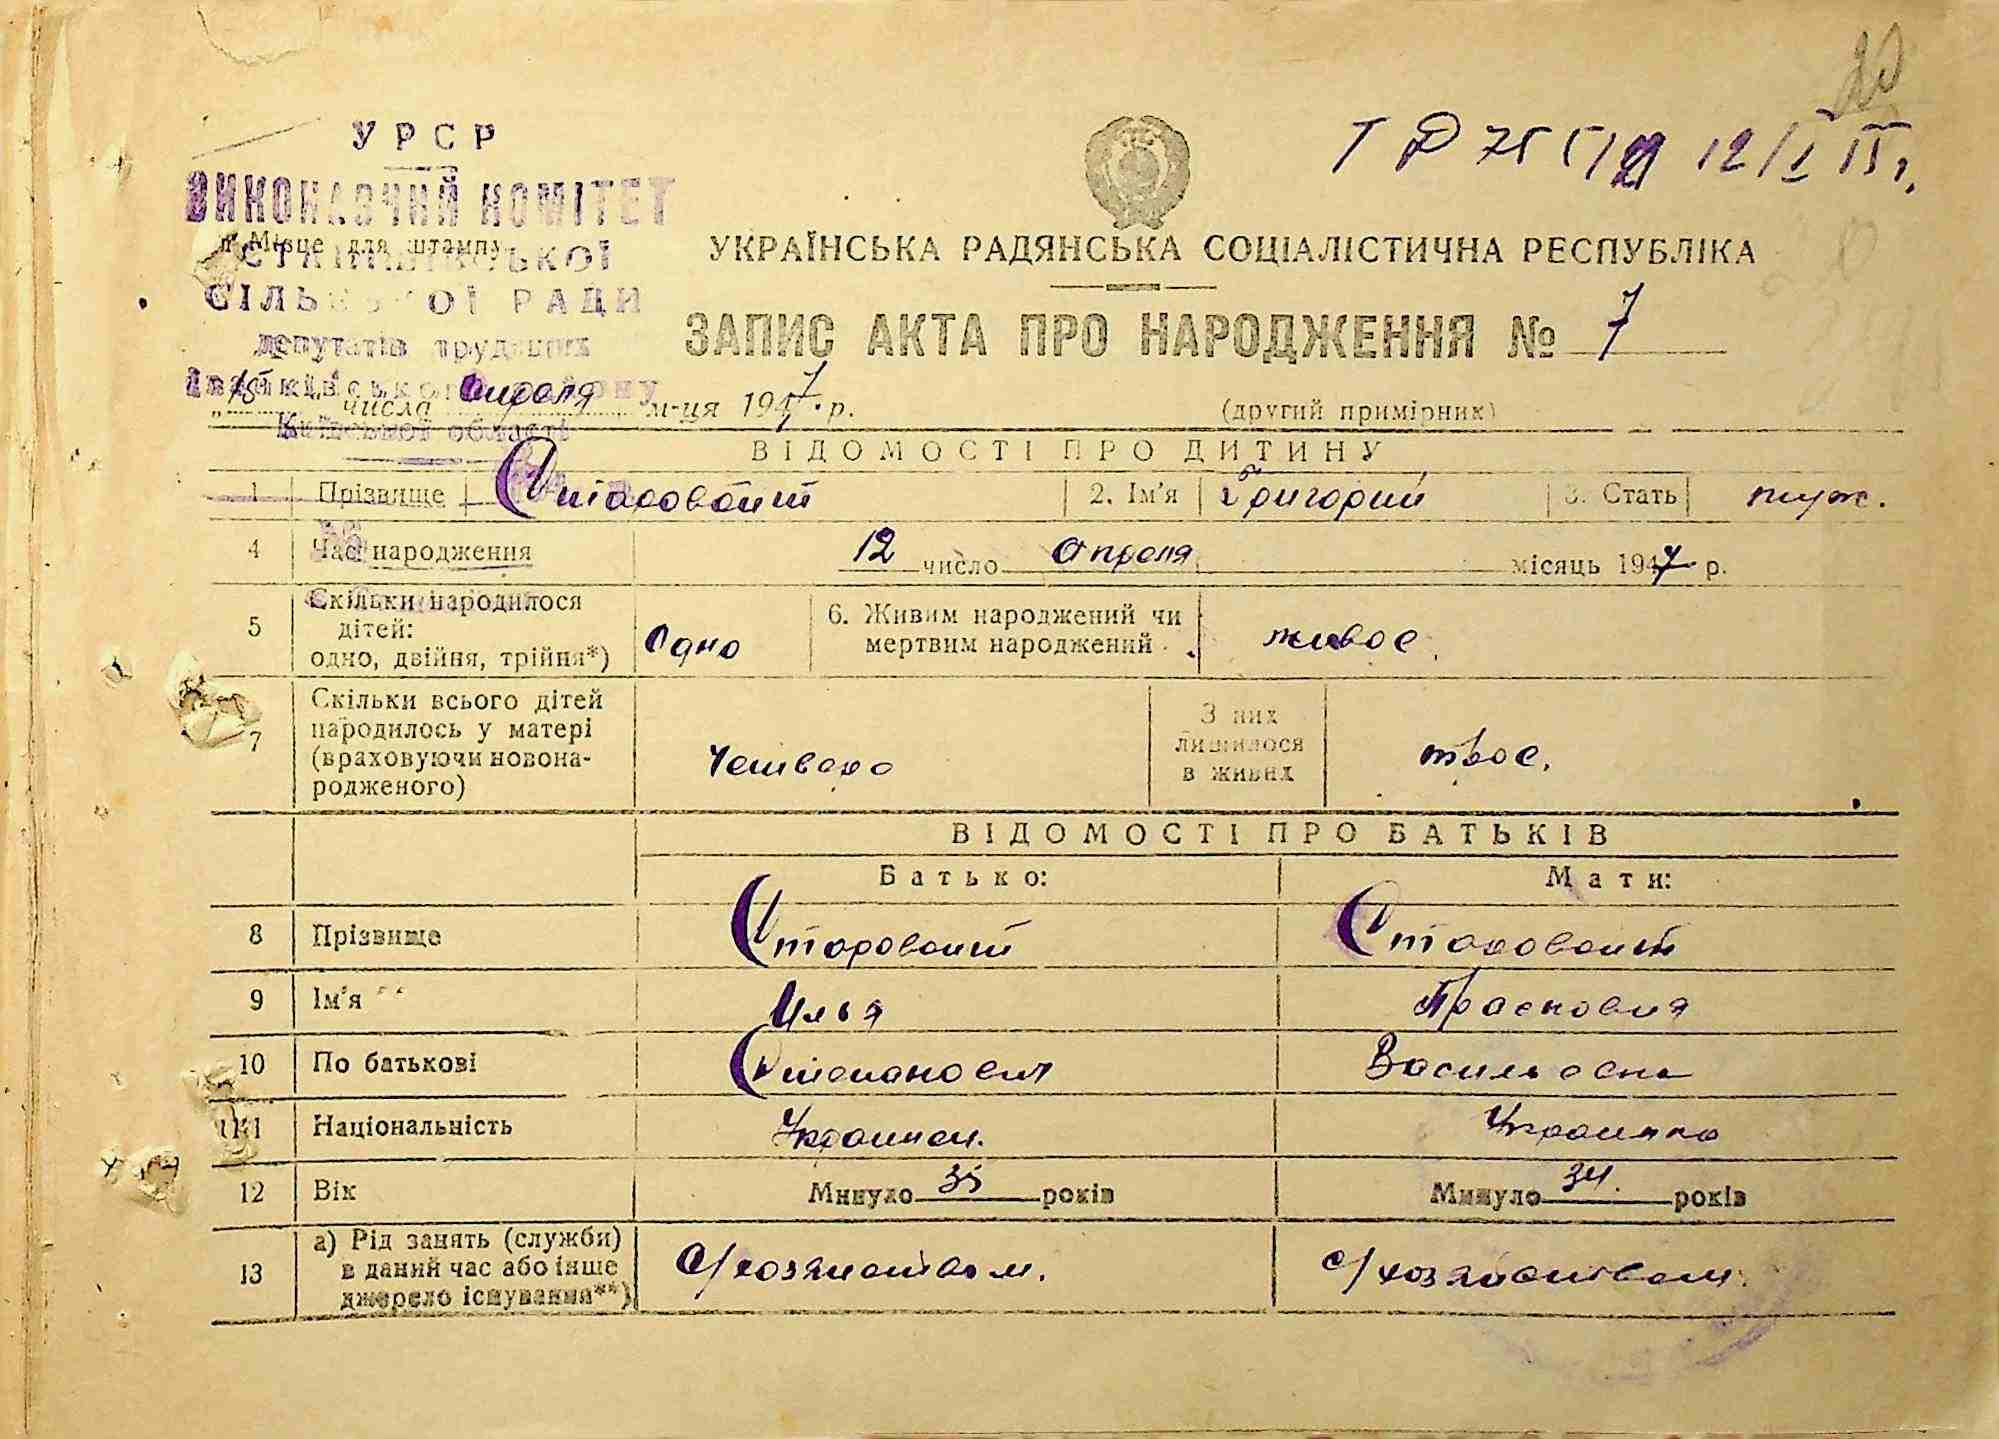 УРСР
ВИКОНАВЧИЙ КОМІТЕТ
Місце для штампу
СІЛЬСЬКОЇ РАДИ
депутатів трудящих
Іванківського району
Київської області
12/I
УКРАЇНСЬКА РАДЯНСЬКА СОЦІАЛІСТИЧНА РЕСПУБЛІКА
ЗАПИС АКТА ПРО НАРОДЖЕННЯ № 7
„15" числа апреля м-ця 1947 р.
(другий примірник)
ВІДОМОСТІ ПРО ДИТИНУ
1 Прізвище Старовойт 2. Ім'я Григорий 3. Стать муж.
4 Час народження 12 число апреля місяць 1947 р.
5 Скільки народилося дітей: одно, двійня, трійня*) Одно 6. Живим народжений чи мертвим народжений живое
7 Скільки всього дітей народилось у матері (враховуючи новонародженого) Четверо З них лишилося в живих трое.
ВІДОМОСТІ ПРО БАТЬКІВ
Батько: Мати:
8 Прізвище Старовойт Старовойт
9 Ім'я Илья Прасковия
10 По батькові Степанович Васильевна
11 Національність Украинец. Украинка
12 Вік Минуло 35 років Минуло 34. років
13 а) Рід занять (служби) в даний час або інше джерело існування**) С/хозяйством. с/хозяйством.